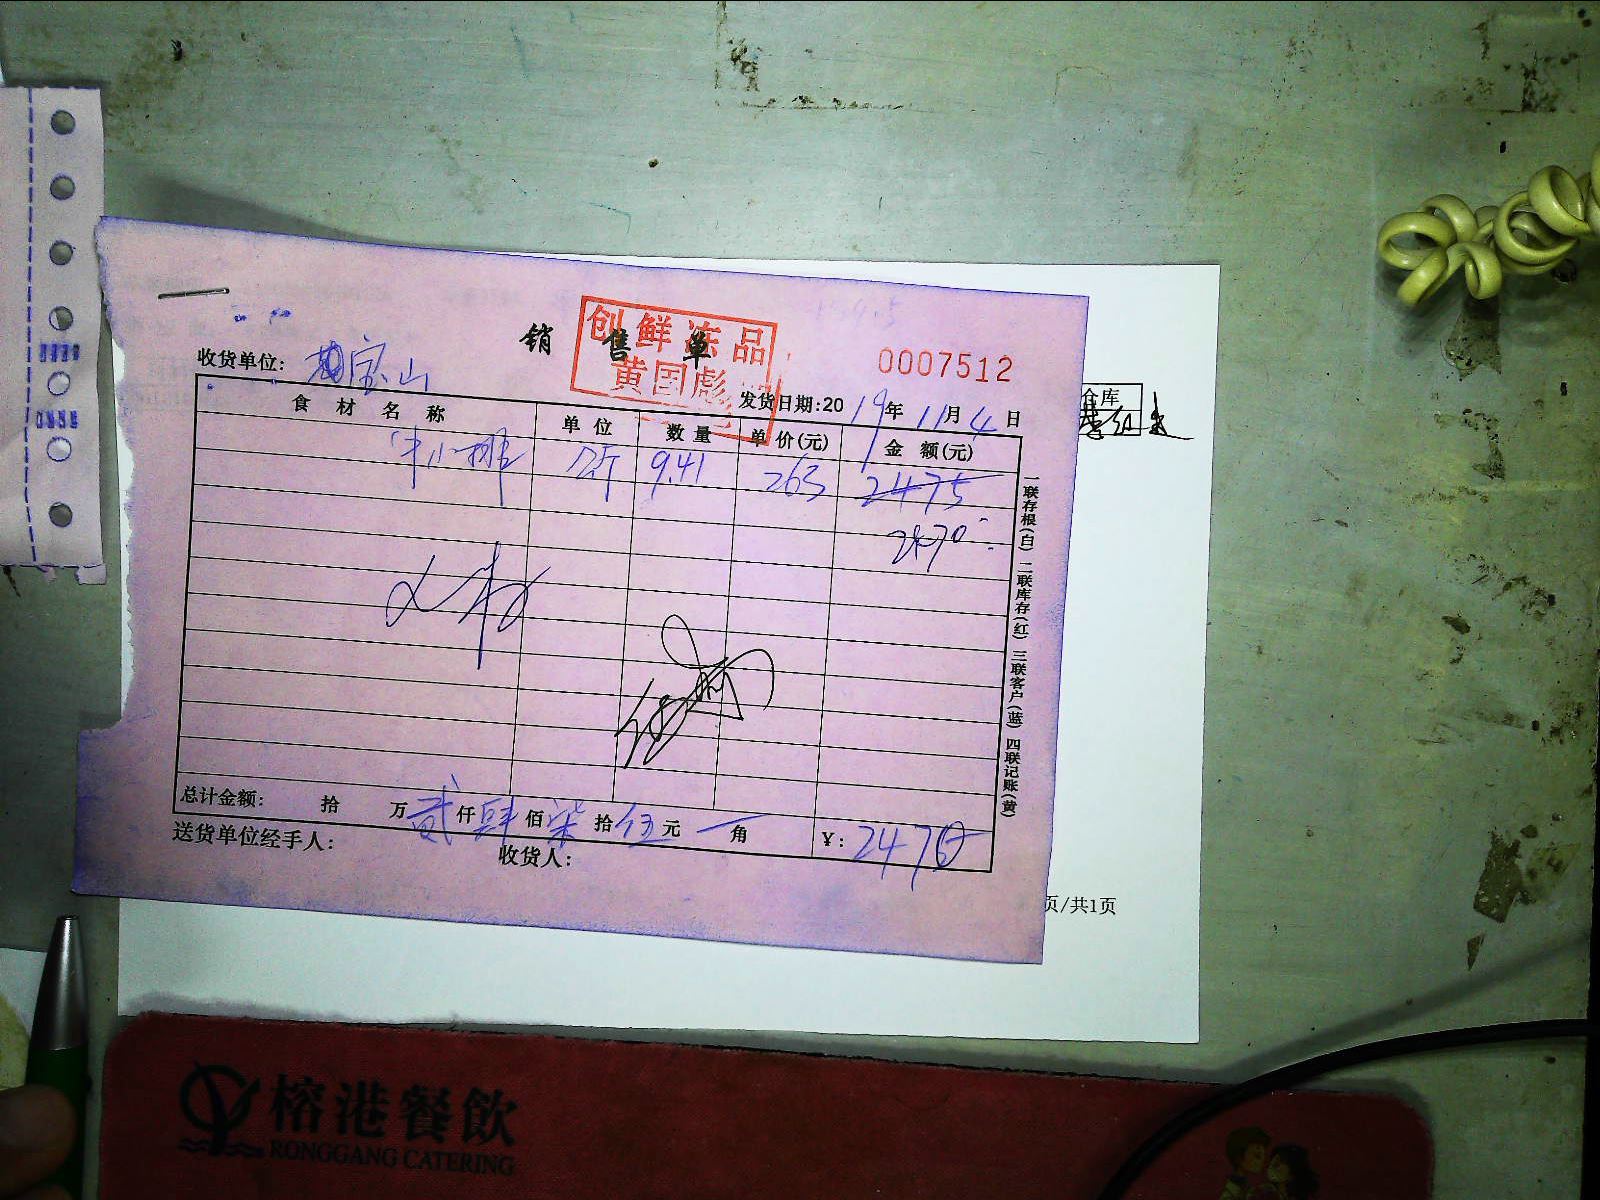 创鲜冻品
黄国彪
销售单
0007512
收货单位: 宝山
发货日期:2019年11月4日
食材名称 单位 数量 单价(元) 金额(元)
牛小排 斤 9.41 263 2475
2470
总计金额: 拾 万贰仟肆佰柒拾伍元 角 ¥: 2470
送货单位经手人:
收货人:
一联存根(白) 二联库存(红) 三联客户(蓝) 四联记账(黄)
仓库
页/共1页
榕港餐飲
RONGGANG CATERING